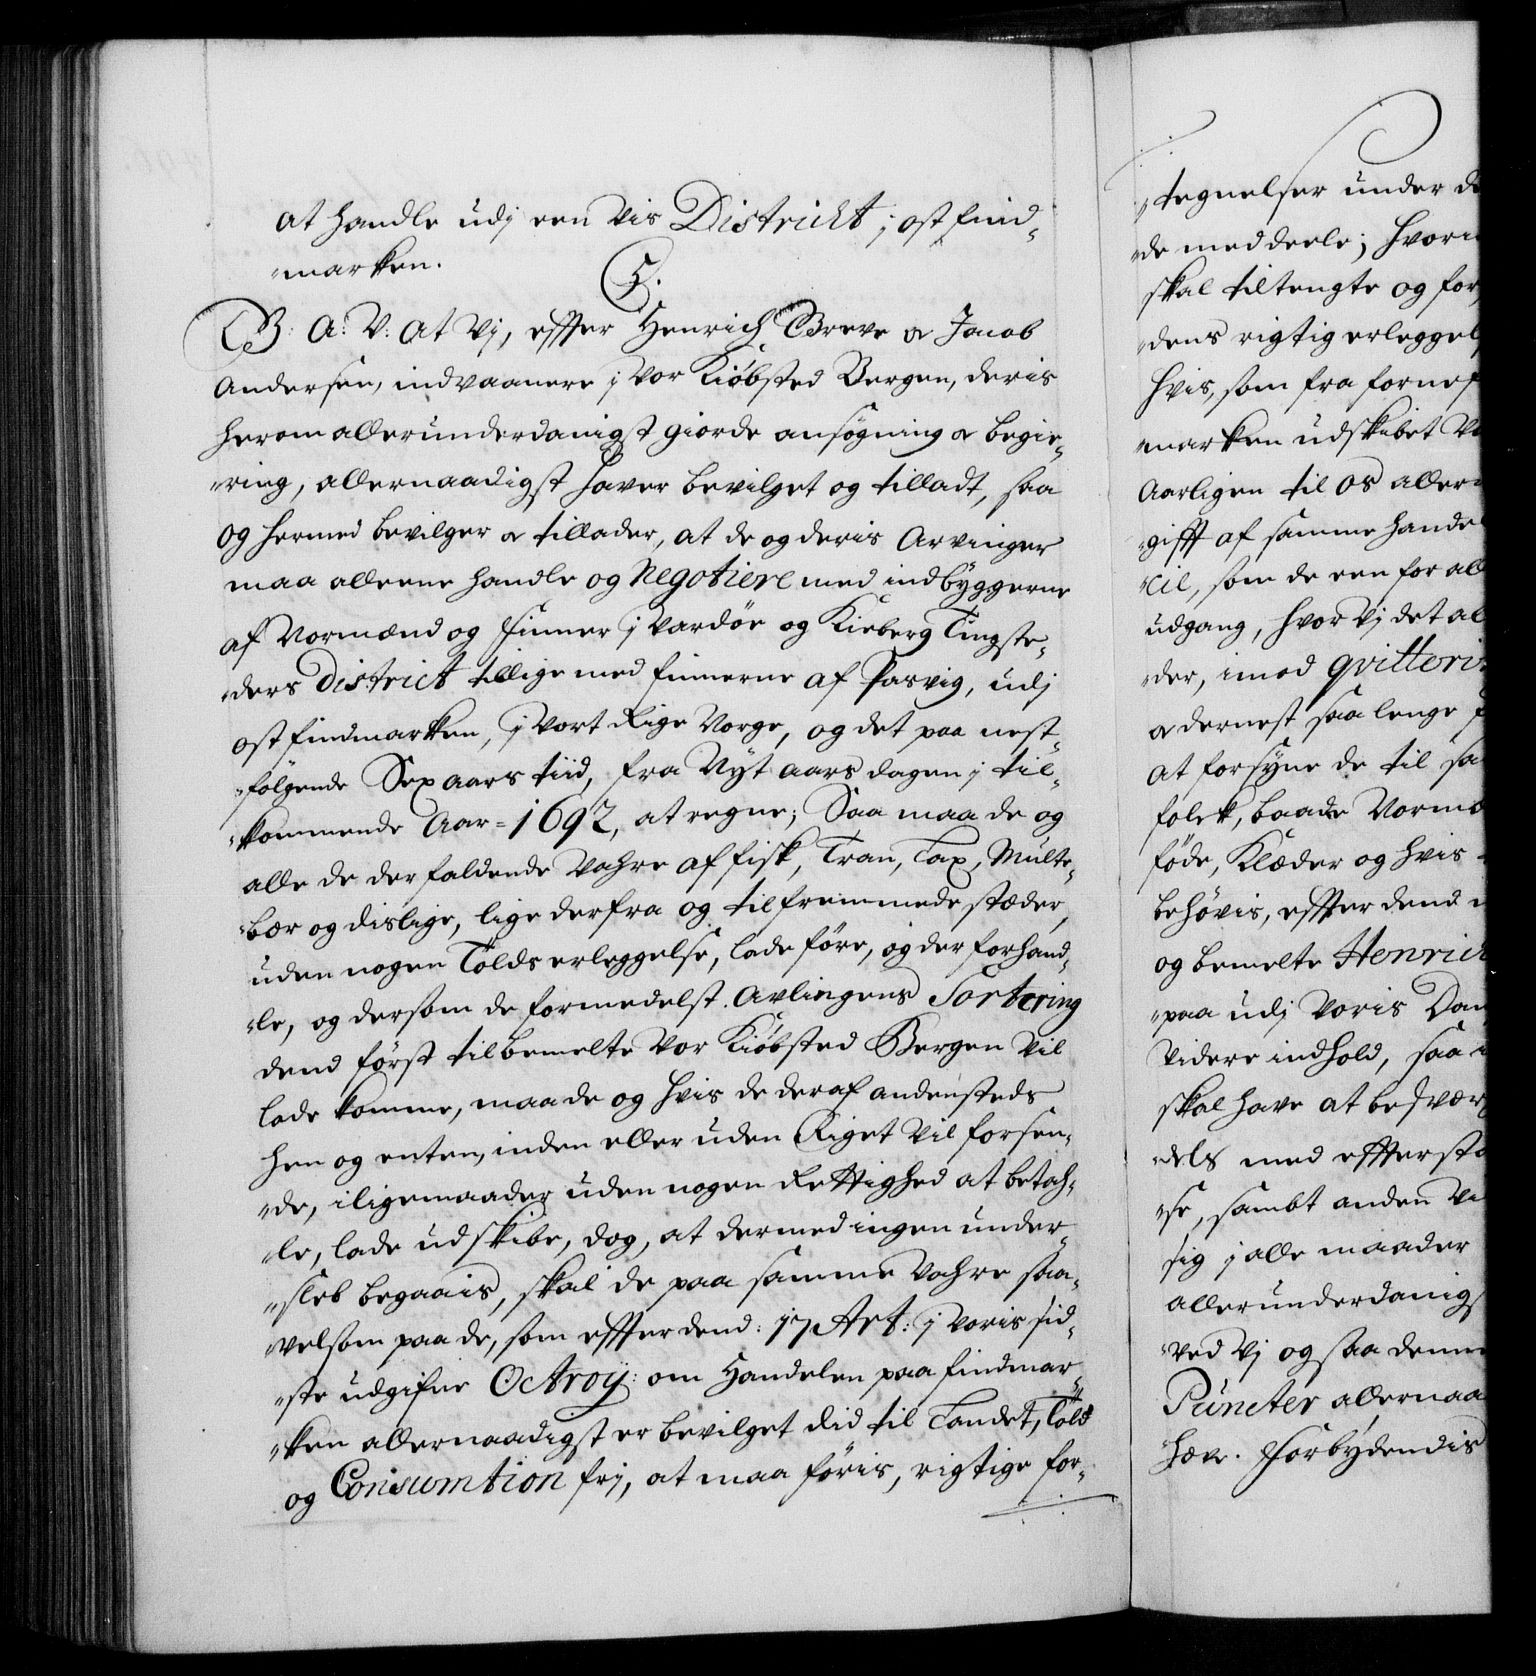 at handle udj een vis District j ostfind-
marken.
C5.
G: A: V: at Vj, effter Henrich Breve oc Jacob
Andersen, indvaanere j vor Kiøbsted Bergen, deris
herom allerunderdanigst giorde ansøgning oc begie-
ring, allernaadigst haver bevilget og tilladt, saa
og hermed bevilger oc tillader, at de og deris Arvinger
maa alleene handle og Negotiere med indbyggerne
af Normænd og finner j Vardøe og Kieberg Tingste-
ders District tillige med finnerne af Pasvig, udj
ostfindmarken, j vort Rige Norge, og det paa nest-
følgende Sex aars tiid, fra Nyt aars dagen j til-
kommende Aar = 1692, at regne; Saa maa de og
alle de der faldende Vahre af fisk, Tran, Lax, Multe-
bær og dislige, lige derfra og til fremmede stæder,
uden nogen Tolds erleggelse, lade føre, og der forhand-
le, og dersom de formedelst Avlingens Sortering
dend først til bemelte vor Kiøbsted Bergen vil
lade komme, maa de og hvis de deraf andensteds
hen og enten, inden eller uden Riget vil forsen-
de, i ligemaader uden nogen Rettighed at betah-
le, lade udskibe, dog, at dermed ingen under-
sleb begaais, skal de paa samme Vahre saa-
velsom paa de, som effter dend 17 Art: j voris sid-
ste udgifne Octroy: om Handelen paa findmar-
ken allernaadigst er bevilget did til Landet, Told
og Consumtion frj, at maa føris, rigtige for-
tegnelser under
de meddeele; hvor
skal tiltengte og for
dens rigtig erleggel
hvis, som fra fornef
marken udskibet
Aarligen til os aller
gifft af samme handel
til, som de een for all
udgang, hvor vj det al
der, imod qvitteri
oc dernest saa lenge
at forsyne de til sa
folck, baade Normæ
føde, Klæder og hvis
behøvis, effter dend
og bemelte Henric
paa udj voris Dan
videre indhold, saa
skal have at besvær
dels med effterst
se, sambt anden
sig j alle maader
allerunderdanigs
ved vj og saa denne
Puncter allernaa
have. Forbydendis